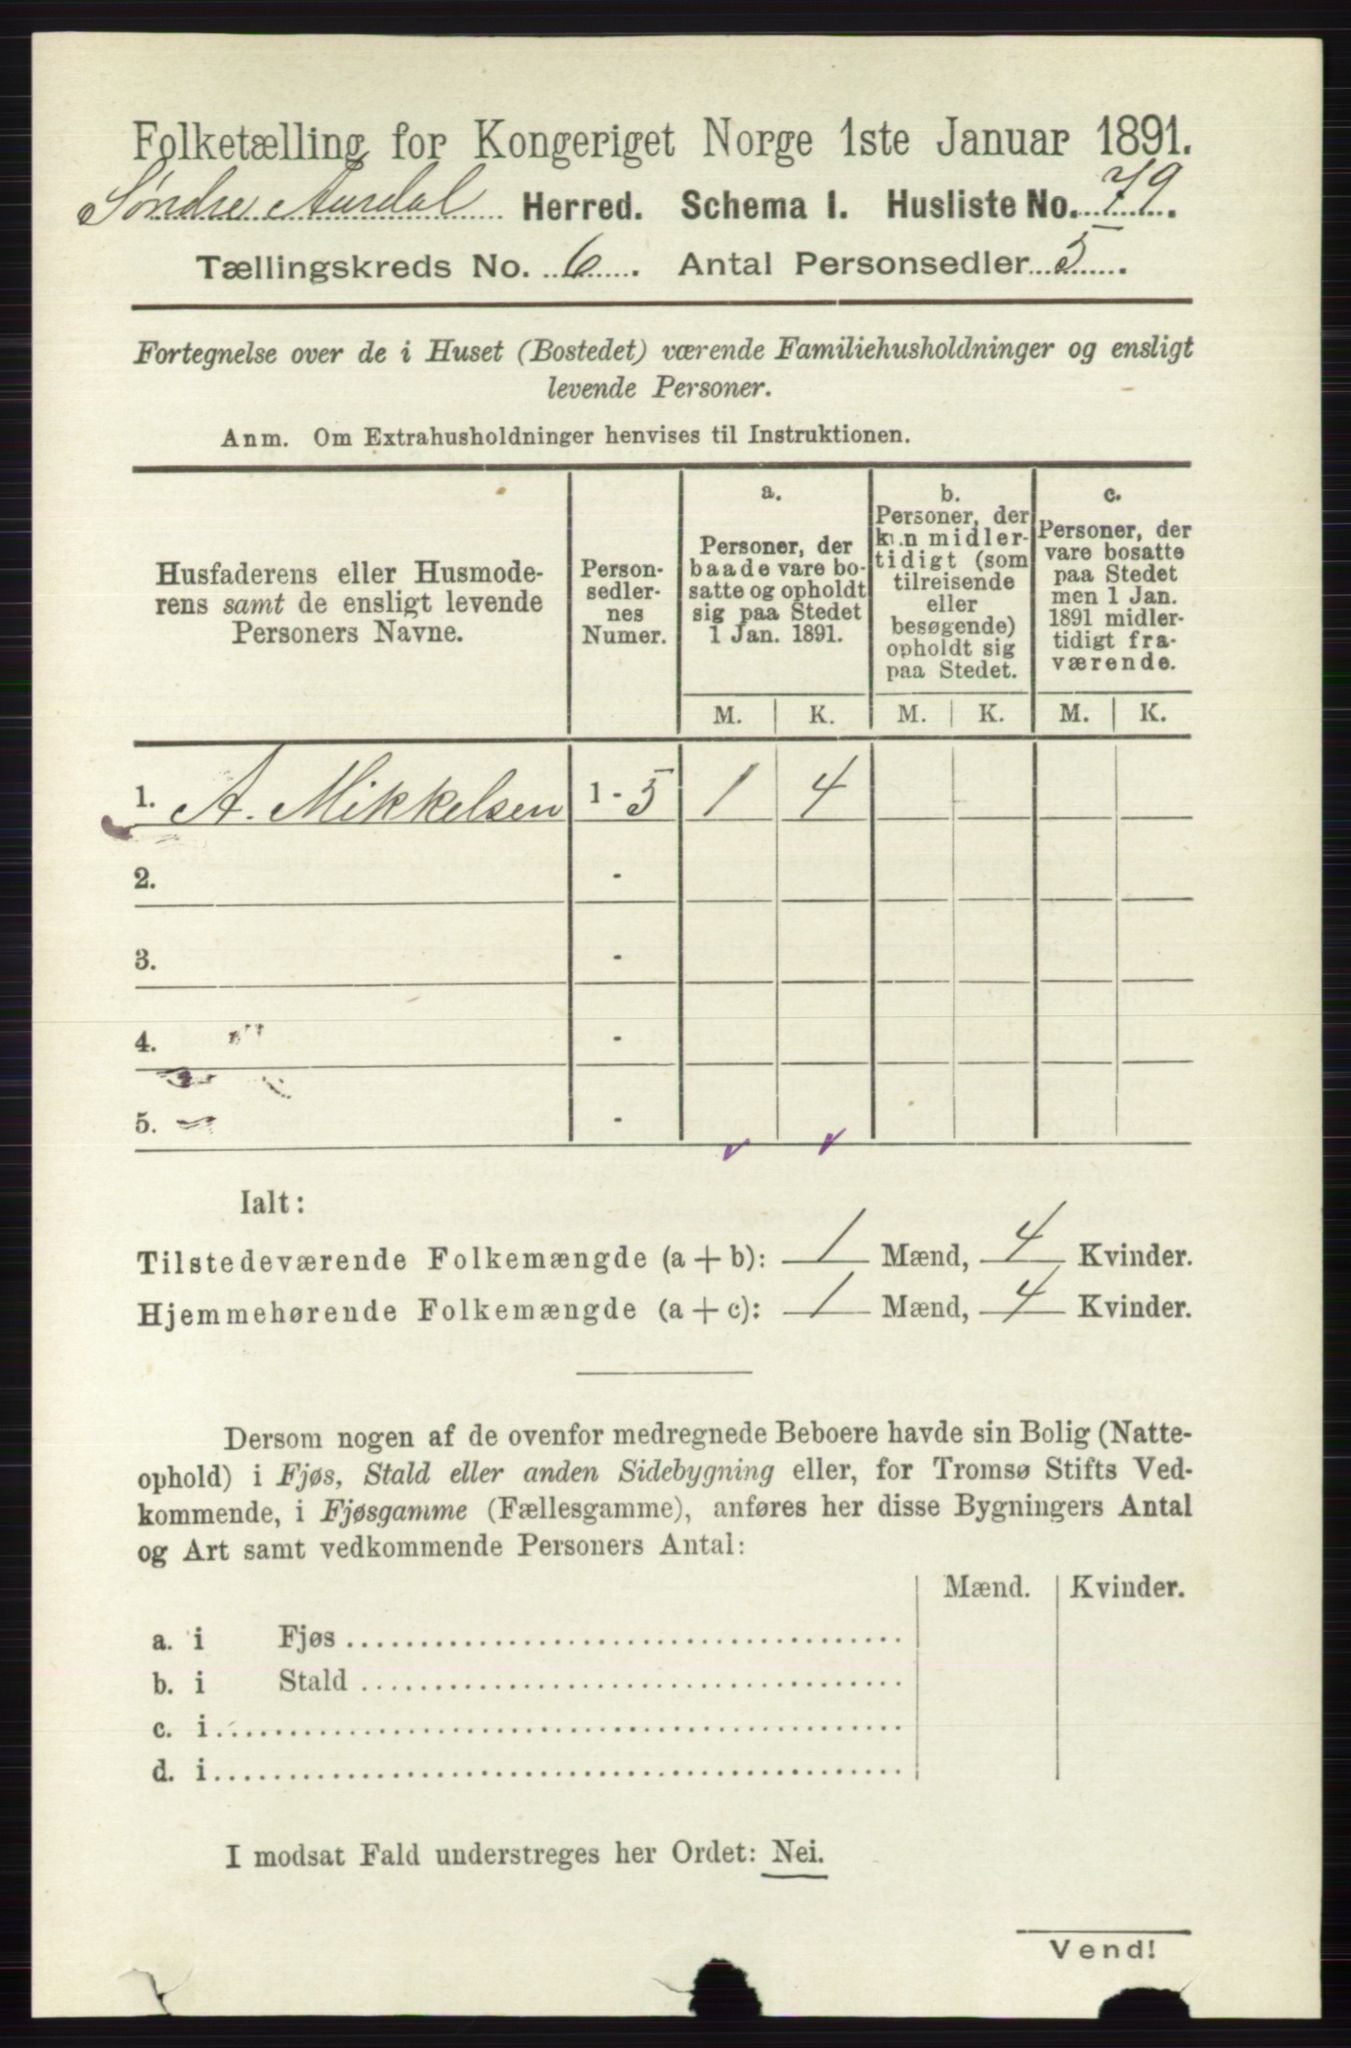 Folketælling for Kongeriget Norge 1ste Januar 1891.
Søndre Aurdal Herred. Schema I. Husliste No. 79.
Tællingskreds No. 6. Antal Personsedler 5.
Fortegnelse over de i Huset (Bostedet) værende Familiehusholdninger og ensligt
levende Personer.
Anm. Om Extrahusholdninger henvises til Instruktionen.
Husfaderens eller Husmode-
rens samt de ensligt levende
Personers Navne.
Person-
sedler-
nes
Numer.
a.
Personer, der
baade vare bo-
satte og opholdt
sig paa Stedet
1 Jan. 1891.
b.
Personer, der
kun midler-
tidigt (som
tilreisende
eller
besøgende)
opholdt sig
paa Stedet.
c.
Personer, der
vare bosatte
paa Stedet
men 1 Jan.
1891 midler-
tidigt fra-
værende.
M. K. M. K. M. K.
1. A. Mikkelsen 1 - 5 1 4
2. -
3. -
4. -
5. -
Ialt:
Tilstedeværende Folkemængde (a + b): 1 Mænd, 4 Kvinder.
Hjemmehørende Folkemængde (a + c): 1 Mænd, 4 Kvinder.
Dersom nogen af de ovenfor medregnede Beboere havde sin Bolig (Natte-
ophold) i Fjøs, Stald eller anden Sidebygning eller, for Tromsø Stifts Ved-
kommende, i Fjøsgamme (Fællesgamme), anføres her disse Bygningers Antal
og Art samt vedkommende Personers Antal:
Mænd. Kvinder.
a. i Fjøs
b. i Stald
c. i
d. i
I modsat Fald understreges her Ordet: Nei.
Vend!